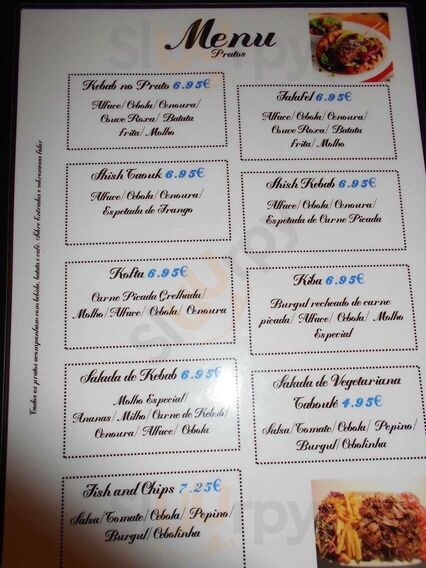 Menu
Pratos
Kebab no Prato 6.95€
Alface/ Cebola/ Cenoura/
Couve Roxa/ Batata
Frita/ Molho
Falafel 6.95€
Alface/ Cebola/ Cenoura/
Couve Roxa/ Batata
Frita/ Molho
Shish Taouk 6.95€
Alface/ Cebola/ Cenoura/
Espetada de Frango
Shish Kebab 6.95€
Alface/ Cebola/ Cenoura/
Espetada de Carne Picada
Kofta 6.95€
Carne Picada Grelhada/
Molho/ Alface/ Cebola/ Cenoura
Kiba 6.95€
Burgul recheado de carne
picada/ Alface/ Cebola/ Molho
Especial
Salada de Kebab 6.95€
Molho Especial/
Ananas/ Milho/ Carne de Kebab/
Cenoura/ Alface/ Cebola
Salada de Vegetariana
Taboulé 4.95€
Salsa/ Tomate/ Cebola/ Pepino/
Burgul/ Cebolinha
Fish and Chips 7.25€
Salsa/ Tomate/ Cebola/ Pepino/
Burgul/ Cebolinha
Todos os pratos acompanham com bebida, batata e café. Sobre Entradas e sobremesa falar
sluurpy